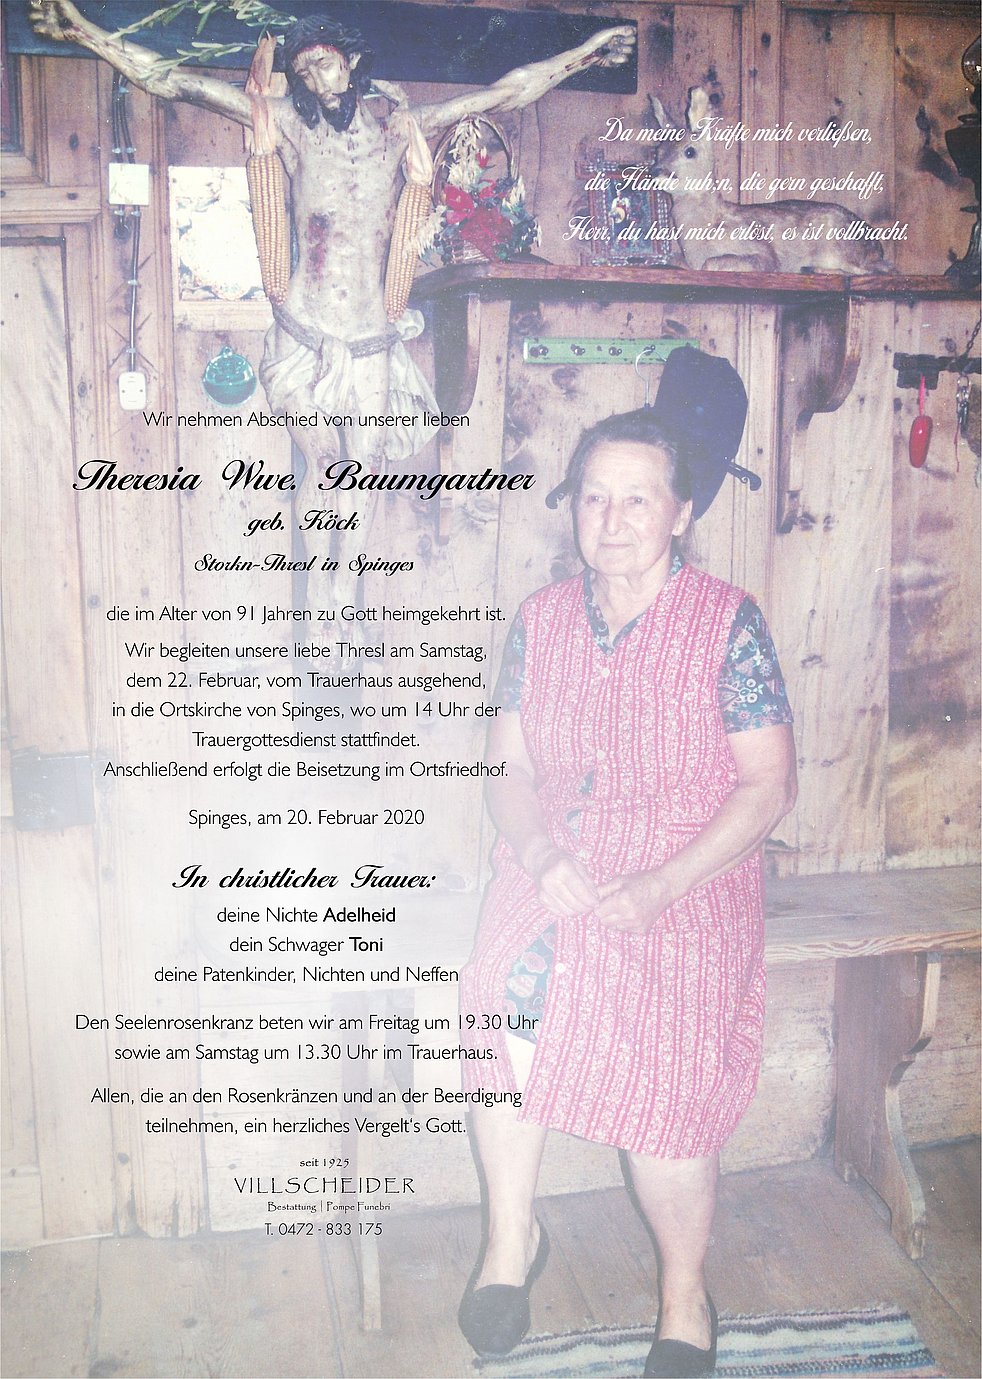 Da meine Kräfte mich verließen,
die Hände ruh;n, die gern geschafft,
Herr, du hast mich erlöst, es ist vollbracht.
Wir nehmen Abschied von unserer lieben
Theresia Wwe. Baumgartner
geb. Köck
Storkn-Thresl in Spinges
die im Alter von 91 Jahren zu Gott heimgekehrt ist.
Wir begleiten unsere liebe Thresl am Samstag,
dem 22. Februar, vom Trauerhaus ausgehend,
in die Ortskirche von Spinges, wo um 14 Uhr der
Trauergottesdienst stattfindet.
Anschließend erfolgt die Beisetzung im Ortsfriedhof.
Spinges, am 20. Februar 2020
In christlicher Trauer:
deine Nichte Adelheid
dein Schwager Toni
deine Patenkinder, Nichten und Neffen
Den Seelenrosenkranz beten wir am Freitag um 19.30 Uhr
sowie am Samstag um 13.30 Uhr im Trauerhaus.
Allen, die an den Rosenkränzen und an der Beerdigung
teilnehmen, ein herzliches Vergelt's Gott.
seit 1925
VILLSCHEIDER
Bestattung | Pompe Funebri
T. 0472 - 833 175